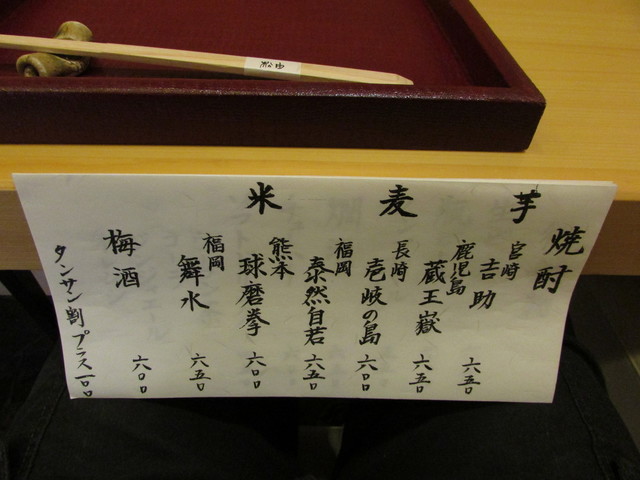 焼酎
芋
宮崎
吉助 六五〇
鹿児島
蔵王嶽 六五〇
麦
長崎
壱岐の島 六〇〇
福岡
泰然自若 六五〇
米
熊本
球磨拳 六〇〇
福岡
舞水 六五〇
梅酒 六〇〇
タンサン割プラス一〇〇